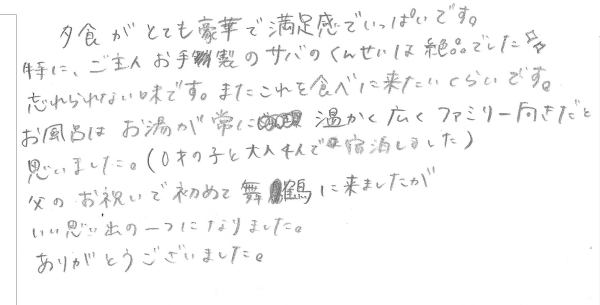 夕食がとても豪華で満足感でいっぱいです。
特に、ご主人お手製のサバのくんせいは絶品でした☆☆
忘れられない味です。またこれを食べに来たいくらいです。
お風呂はお湯が常に温かく広くファミリー向きだと
思いました。(0才の子と大人4人で宿泊しました)
父のお祝いで初めて舞鶴に来ましたが
いい思い出の一つになりました。
ありがとうございました。